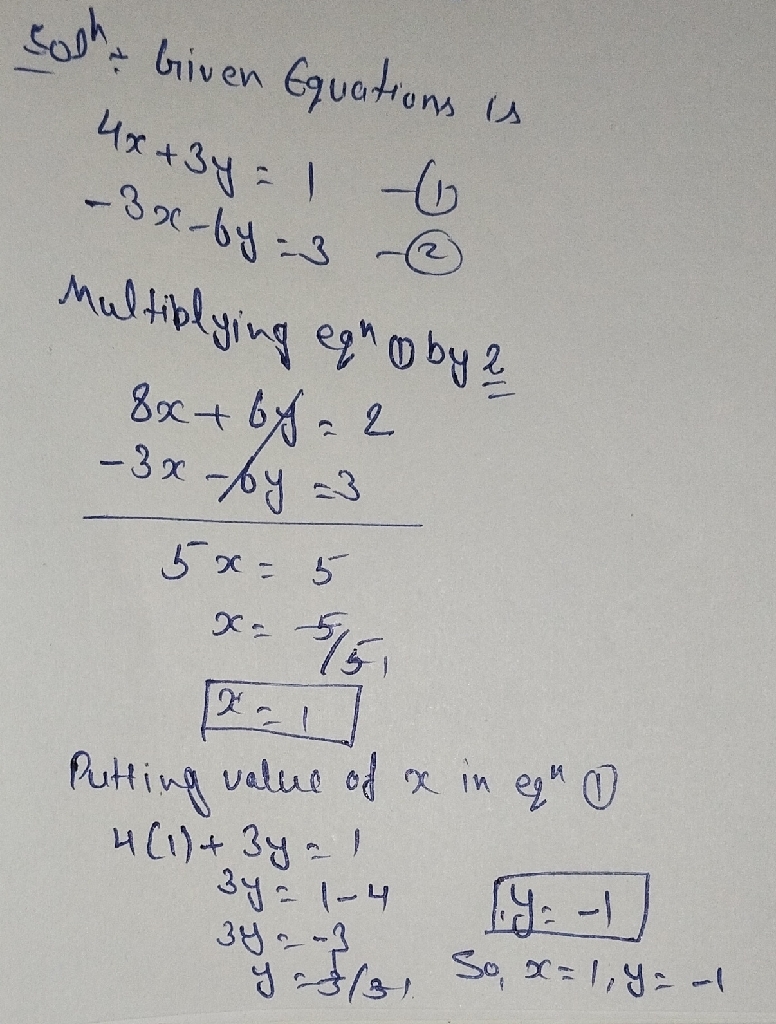 Soln:- Given Equations is
4x + 3y = 1 -①
-3x - 6y = 3 -②
Multiplying eqn ① by 2
8x + 6y = 2
-3x - 6y = 3
5x = 5
x = 5/5 1
x = 1
Putting value of x in eqn ①
4(1) + 3y = 1
3y = 1-4
3y = -3
y = -3/3 1
y = -1
So, x = 1, y = -1